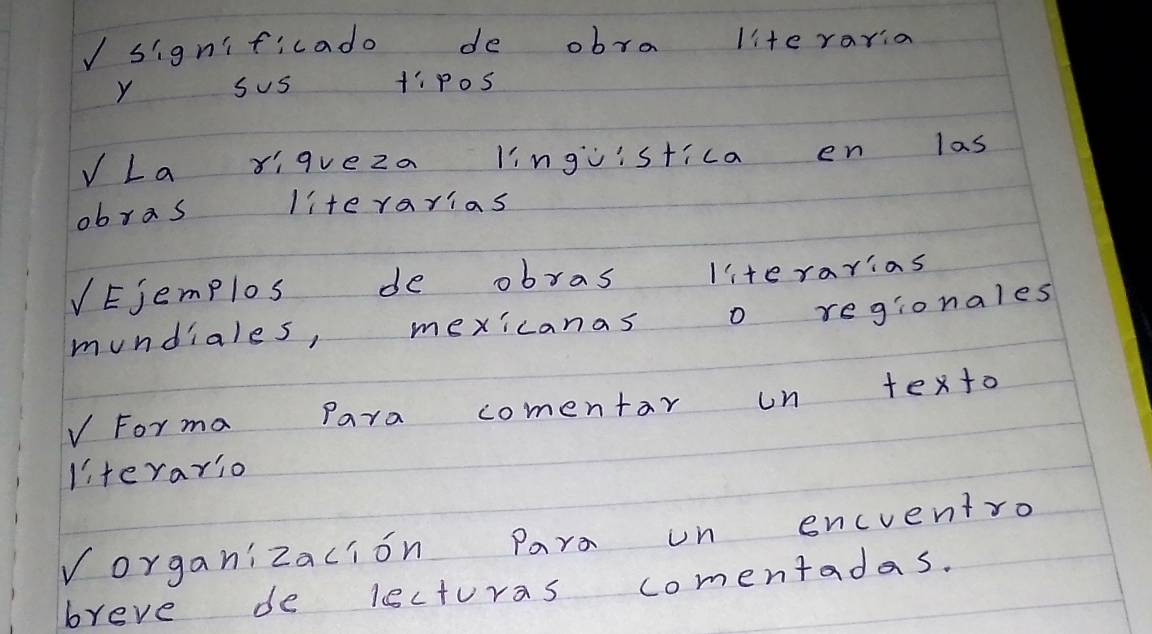 √ significado de obra literaria
y sus tipos
√ La riqueza lingüística en las
obras literarias
√ Ejemplos de obras literarias
mundiales, mexicanas o regionales
√ Forma Para comentar un texto
literario
√ organización Para un encuentro
breve de lecturas comentadas.